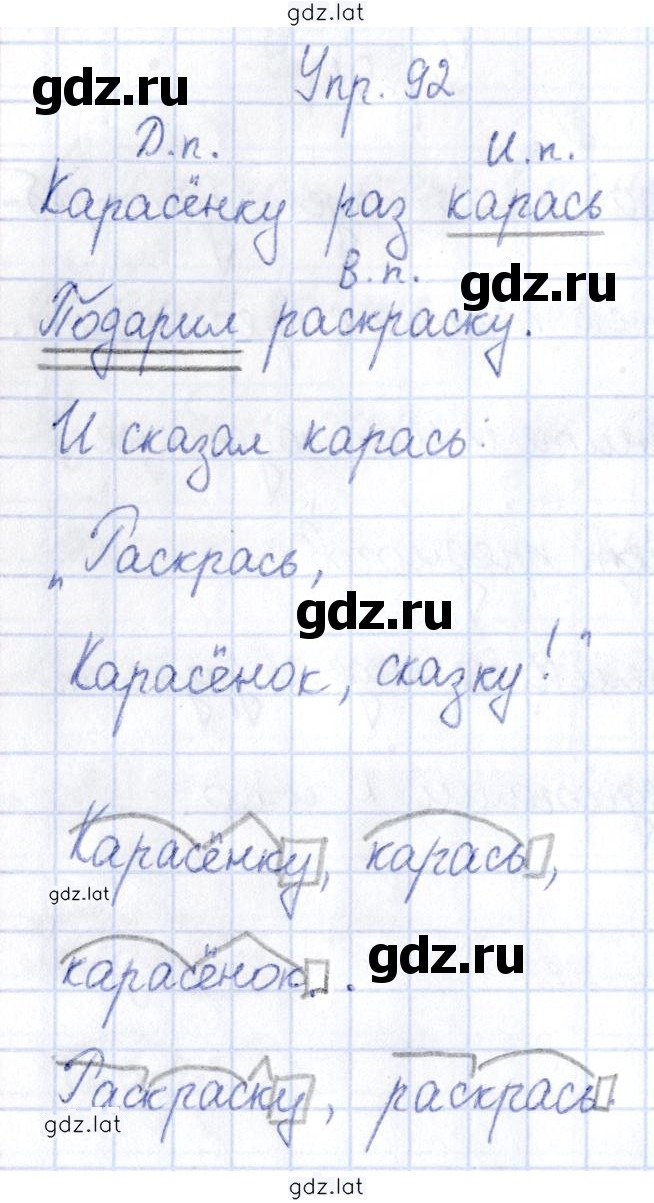 gdz.lat
Упр. 92
gdz.ru
Д.п. И.п.
Карасёнку раз карась
В.п.
gdz.ru
Подарил раскраску.
И сказал карась:
„Раскрась,
gdz.ru
Карасёнок, сказку!“
Карасёнку, карась,
gdz.lat
карасёнок.
gdz.ru
Раскраску, раскрась.
gdz.lat
gdz.lat